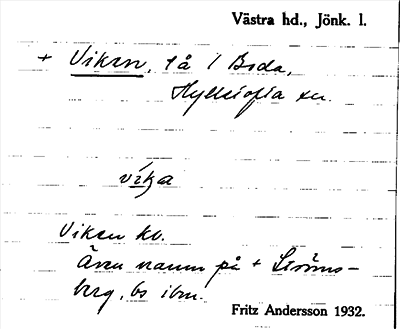 Västra hd., Jönk. l.
+ Viken, lå i Boda,
Hylletofta sn.
vika
Viken kb.
Även namn på + Ströms-
berg, bs ibm.
Fritz Andersson 1932.